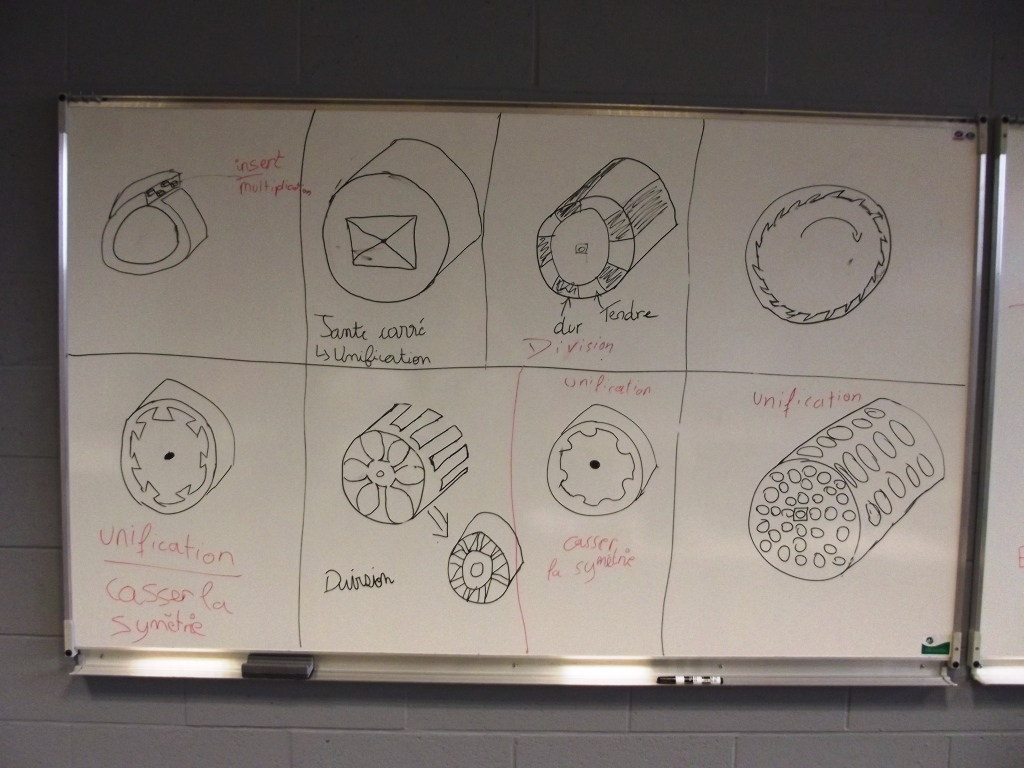 insert
multiplication
Jante carré
↳ Unification
dur
Tendre
Division
unification
casser la
symétrie
Division
unification
casser
la symétrie
unification